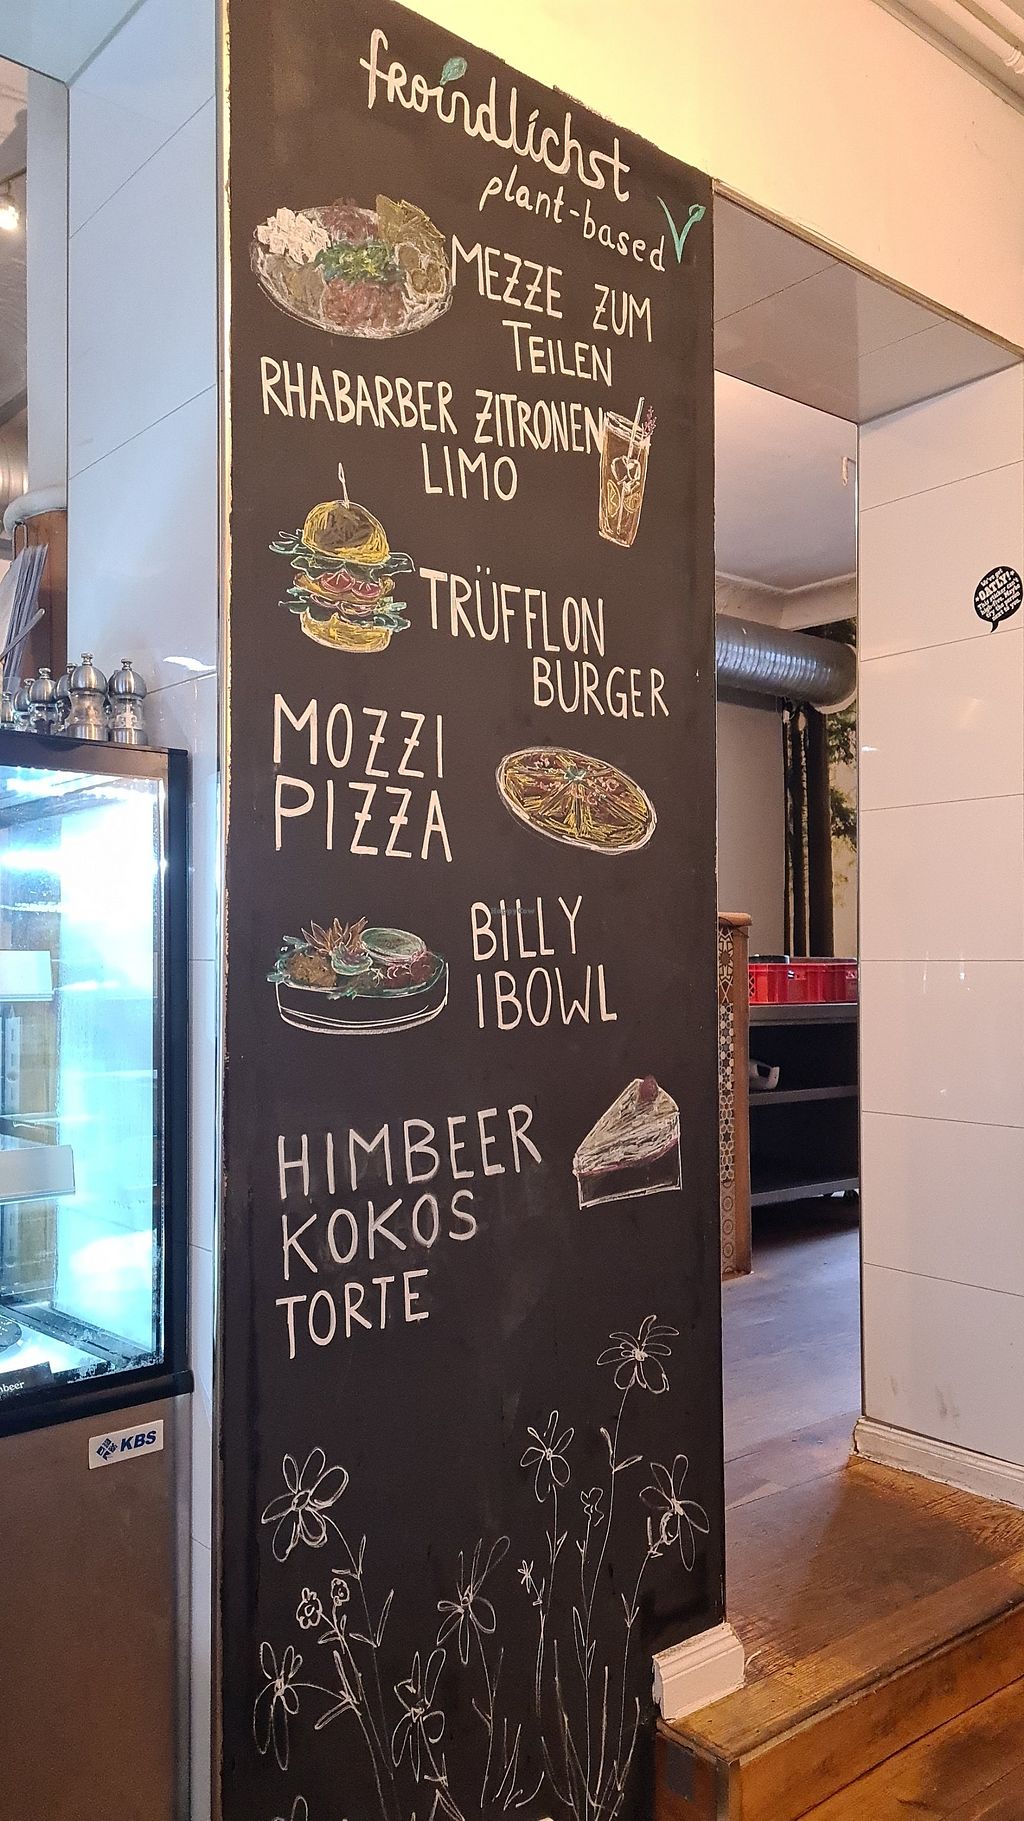 froindlichst
plant-based
MEZZE ZUM
TEILEN
RHABARBER ZITRONEN
LIMO
TRÜFFLON
BURGER
MOZZI
PIZZA
BILLY
IBOWL
HIMBEER
KOKOS
TORTE
We've got
OATLY!
KBS